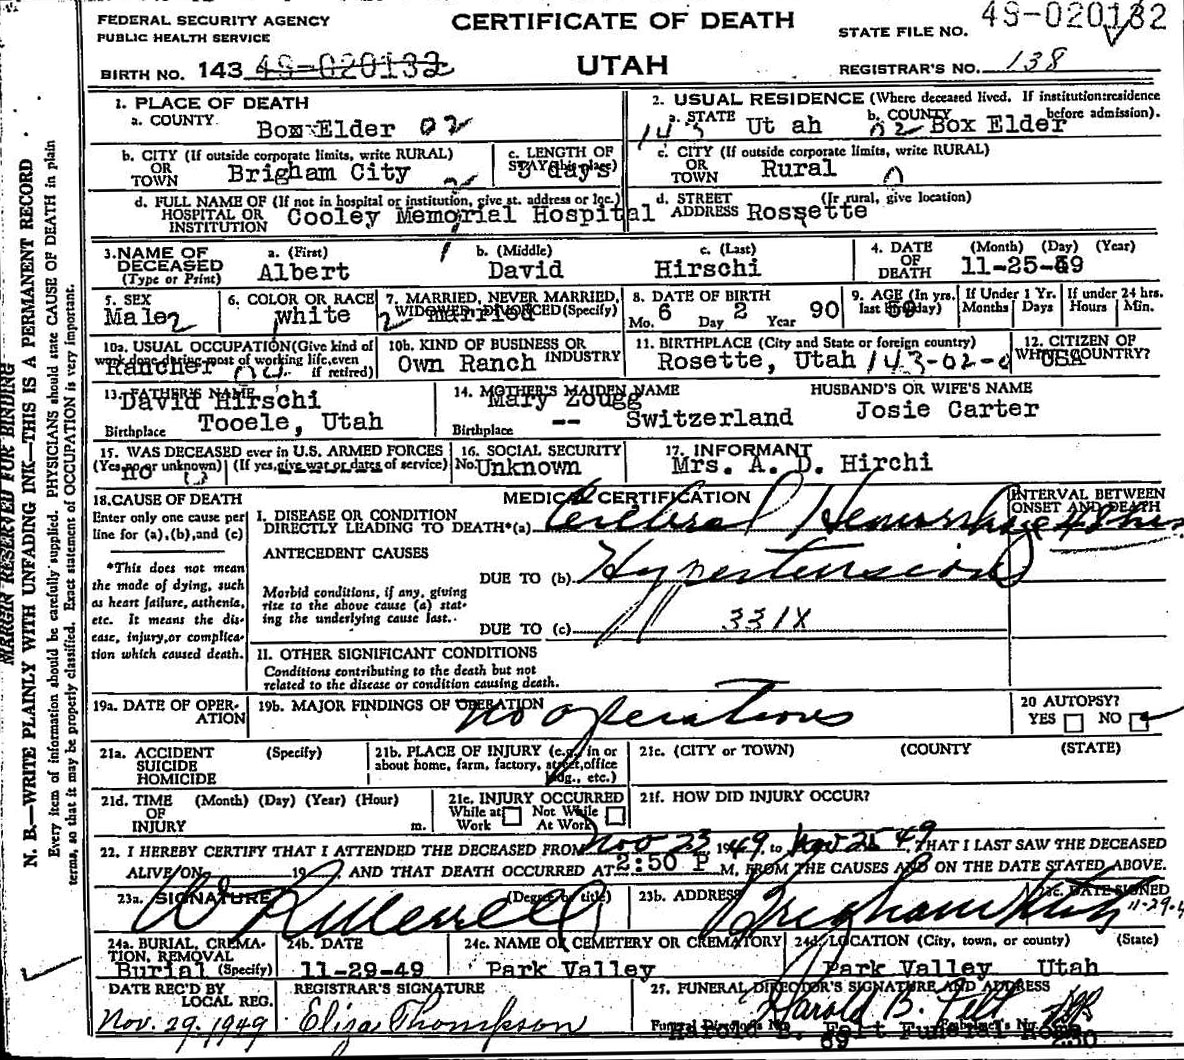 FEDERAL SECURITY AGENCY
PUBLIC HEALTH SERVICE
CERTIFICATE OF DEATH
UTAH
STATE FILE NO. 49-020132
BIRTH NO. 143 49-020132
REGISTRAR'S NO. 138
1. PLACE OF DEATH
a. COUNTY Box Elder 02
b. CITY (If outside corporate limits, write RURAL) OR TOWN Brigham City
c. LENGTH OF STAY (in this place) 3 days
d. FULL NAME OF (If not in hospital or institution, give st. address or loc.) HOSPITAL OR INSTITUTION Cooley Memorial Hospital
2. USUAL RESIDENCE (Where deceased lived. If institution:residence before admission).
a. STATE 143 Ut ah
b. COUNTY 02 Box Elder
c. CITY (If outside corporate limits, write RURAL) OR TOWN Rural 0
d. STREET ADDRESS (If rural, give location) Rossette
3. NAME OF DECEASED (Type or Print)
a. (First) Albert
b. (Middle) David
c. (Last) Hirschi
4. DATE OF DEATH (Month) (Day) (Year) 11-25-49
5. SEX Male 2
6. COLOR OR RACE white
7. MARRIED, NEVER MARRIED, WIDOWED, DIVORCED (Specify) married 2
8. DATE OF BIRTH Mo. 6 Day 2 Year 90
9. AGE (In yrs. last birthday) 59
If Under 1 Yr. Months Days
If under 24 hrs. Hours Min.
10a. USUAL OCCUPATION (Give kind of work done during most of working life, even if retired) Rancher
10b. KIND OF BUSINESS OR INDUSTRY Own Ranch
11. BIRTHPLACE (City and State or foreign country) Rosette, Utah 143-02-0
12. CITIZEN OF WHAT COUNTRY? USA
13. FATHER'S NAME David Hirschi
Birthplace Tooele, Utah
14. MOTHER'S MAIDEN NAME Mary Zougg
Birthplace -- Switzerland
HUSBAND'S OR WIFE'S NAME
Josie Carter
15. WAS DECEASED ever in U.S. ARMED FORCES
(Yes, no or unknown) no 0 (If yes, give war or dates of service)
16. SOCIAL SECURITY No. Unknown
17. INFORMANT
Mrs. A. D. Hirchi
18. CAUSE OF DEATH
Enter only one cause per line for (a), (b), and (c)
*This does not mean the mode of dying, such as heart failure, asthenia, etc. It means the disease, injury, or complication which caused death.
MEDICAL CERTIFICATION
INTERVAL BETWEEN ONSET AND DEATH
I. DISEASE OR CONDITION DIRECTLY LEADING TO DEATH*(a) Cerebral Hemorrhage 48 hrs
ANTECEDENT CAUSES
Morbid conditions, if any, giving rise to the above cause (a) stating the underlying cause last.
DUE TO (b) Hypertension
DUE TO (c) 331X
II. OTHER SIGNIFICANT CONDITIONS
Conditions contributing to the death but not related to the disease or condition causing death.
19a. DATE OF OPERATION
19b. MAJOR FINDINGS OF OPERATION no operations
20 AUTOPSY?
YES NO
21a. ACCIDENT SUICIDE HOMICIDE (Specify)
21b. PLACE OF INJURY (e.g., in or about home, farm, factory, street, office bldg., etc.)
21c. (CITY or TOWN) (COUNTY (STATE)
21d. TIME OF INJURY (Month) (Day) (Year) (Hour) m.
21e. INJURY OCCURRED
While at Work Not While At Work
21f. HOW DID INJURY OCCUR?
22. I HEREBY CERTIFY THAT I ATTENDED THE DECEASED FROM Nov 23 1949 to Nov 25 49, THAT I LAST SAW THE DECEASED
ALIVE ON 19 AND THAT DEATH OCCURRED AT 2:50 P M, FROM THE CAUSES AND ON THE DATE STATED ABOVE.
23a. SIGNATURE (Degree or title)
23b. ADDRESS Brigham Utah
23c. DATE SIGNED 11-29-4
24a. BURIAL, CREMATION, REMOVAL (Specify) Burial
24b. DATE 11-29-49
24c. NAME OF CEMETERY OR CREMATORY Park Valley
24d. LOCATION (City, town, or county) (State) Park Valley Utah
DATE REC'D BY LOCAL REG. Nov. 29, 1949
REGISTRAR'S SIGNATURE Eliza Thompson
25. FUNERAL DIRECTOR'S SIGNATURE AND ADDRESS
Harold B. Felt
Harold B. Felt Funeral Home
89 230
MARGIN RESERVED FOR BINDING
N. B.—WRITE PLAINLY WITH UNFADING INK—THIS IS A PERMANENT RECORD
Every item of information should be carefully supplied. PHYSICIANS should state CAUSE OF DEATH in plain
terms, so that it may be properly classified. Exact statement of OCCUPATION is very important.